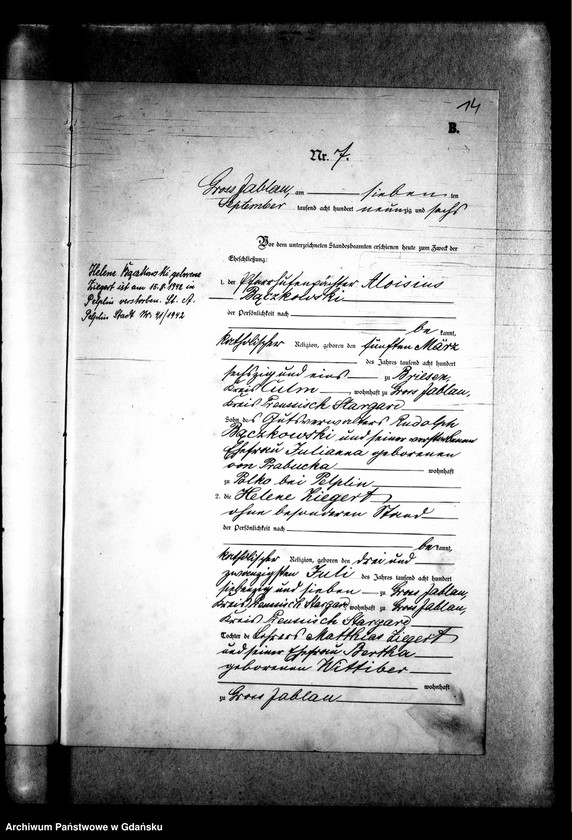 14
B.
Nr. 7.
Gross Jablau, am sieben ten
September tausend acht hundert neunzig und sechs
Vor dem unterzeichneten Standesbeamten erschienen heute zum Zweck der
Eheschließung:
1. der Pfarrhufenpächter Aloisius
Bączkowski
der Persönlichkeit nach
be kannt,
katholischer Religion, geboren den fünften März
des Jahres tausend acht hundert
sechszig und eins zu Briesen,
Kreis Culm, wohnhaft zu Gross Jablau,
Kreis Preussisch Stargard
Sohn des Gutsverwalters Rudolph
Bączkowski und seiner verstorbenen
Ehefrau Julianna geborenen
von Prabucka wohnhaft
zu Polko bei Pelplin
2. die Helene Ziegert
ohne besonderen Stand
der Persönlichkeit nach
be kannt,
katholischer Religion, geboren den drei und
zwanzigsten Juli des Jahres tausend acht hundert
siebenzig und sieben zu Gross Jablau,
Kreis Preussisch Stargard, wohnhaft zu Gross Jablau,
Kreis Preussisch Stargard
Tochter des Lehrers Matthias Ziegert
und seiner Ehefrau Bertha
geborenen Wittiber
wohnhaft
zu Gross Jablau
Helene geborene
Ziegert ist am 15.8.1942 in
Pelplin verstorben. St. A.
Pelplin Stadt Nr. 41/1942
Archiwum Państwowe w Gdańsku